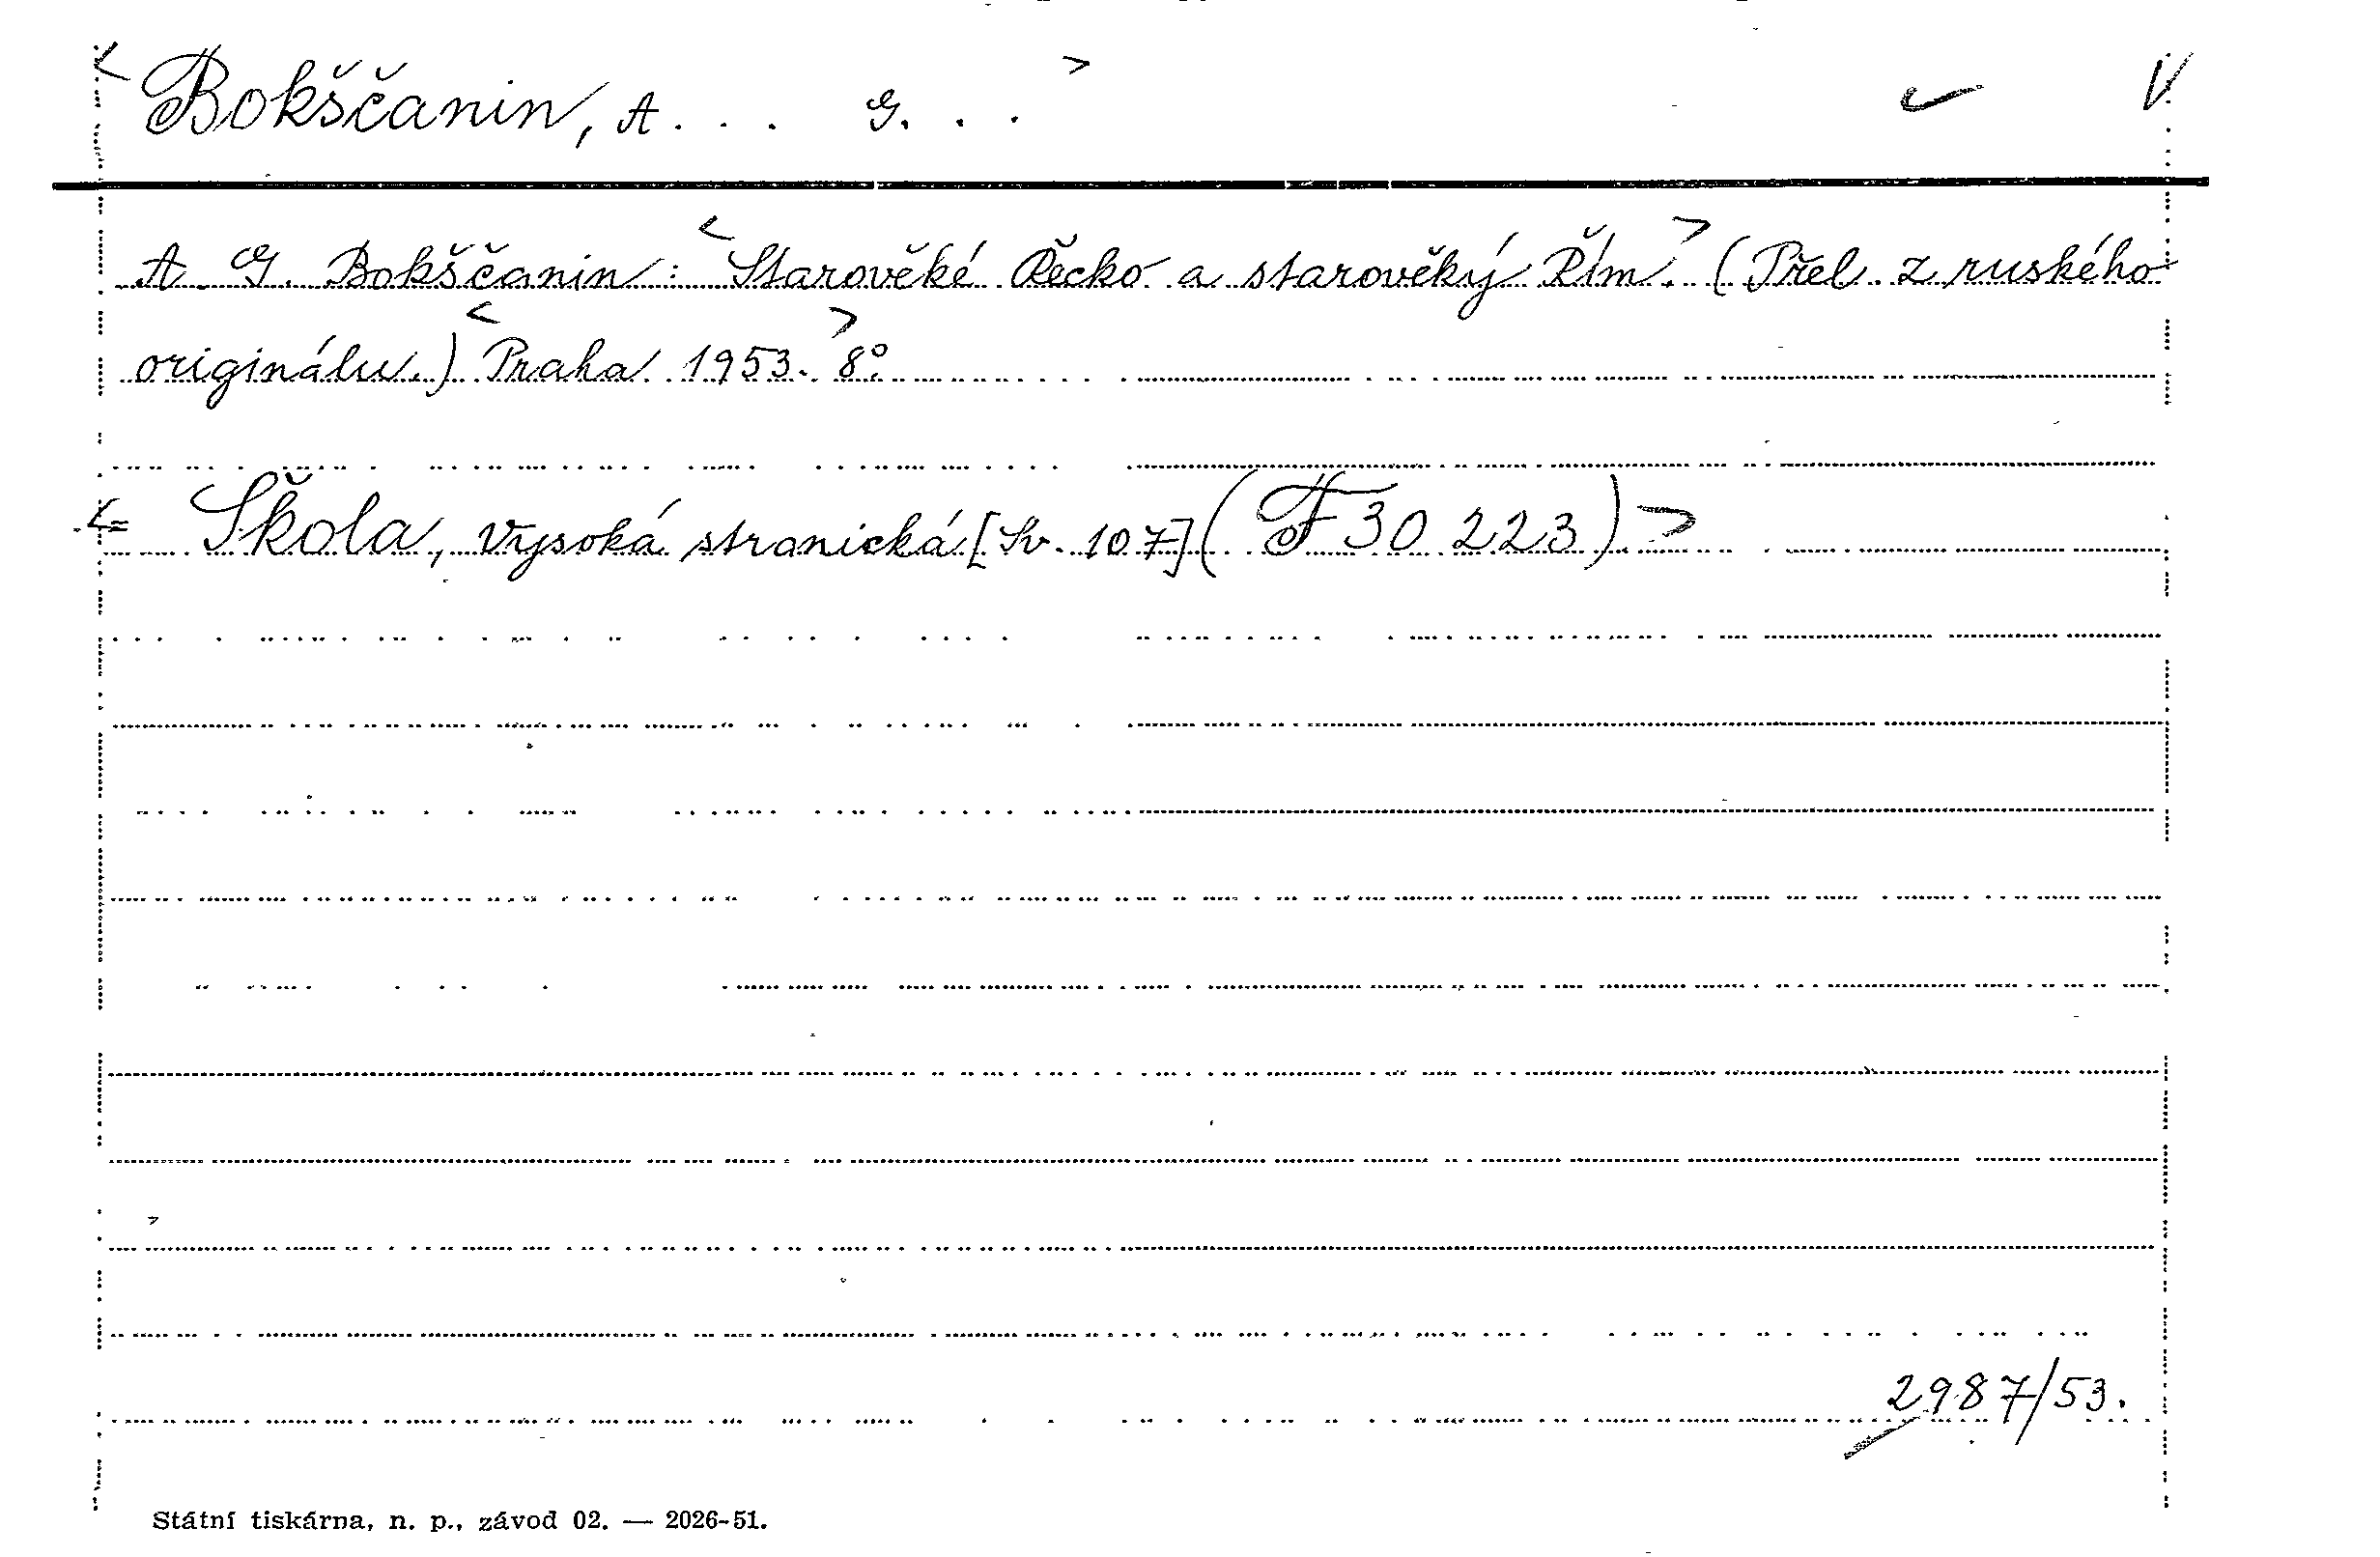 < Bokščanin, A... G... >
A. G. Bokščanin: <Starověké Řecko a starověký Řím.> (Přel. z ruského
originálu.) <Praha 1953.> 8°.
<= Škola, vysoká stranická [Sv. 107] (F 30 223) >
2987/53.
Státní tiskárna, n. p., závod 02. — 2026-51.